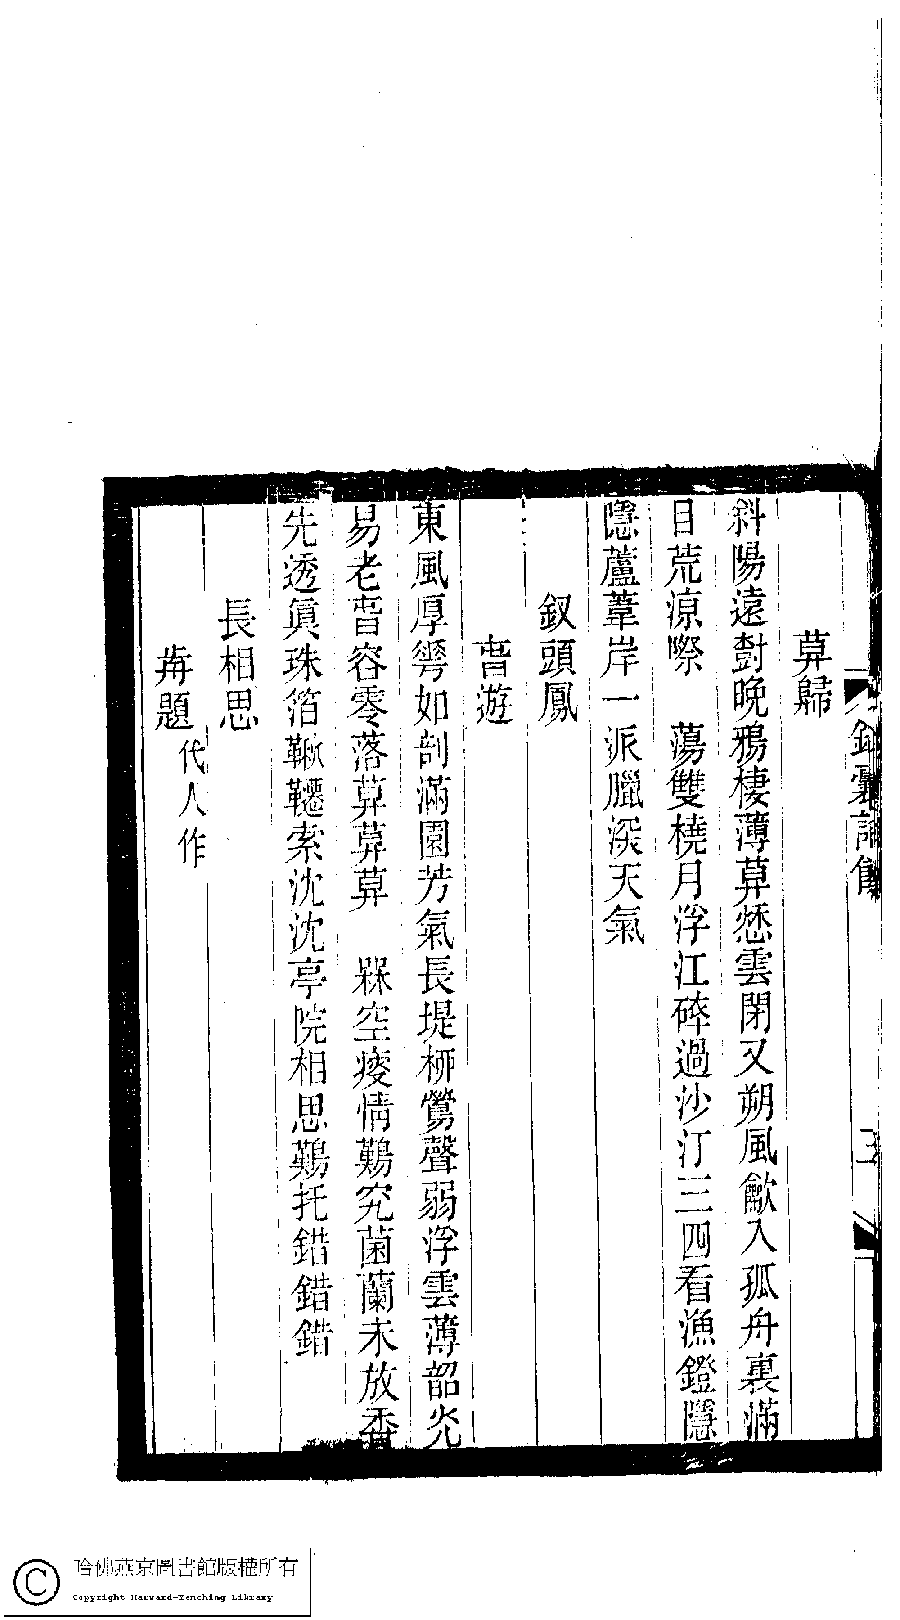 茻歸
斜陽遠對晚鴉棲薄茻愁雲閉又朔風歔入孤舟裏滿
目荒涼際　蕩雙橈月浮江碎過沙汀三四看漁鐙隱
隱蘆葦岸一派臘深天氣
釵頭鳳
旾遊
東風厚蕚如剖滿園芳氣長堤桺鶯聲弱浮雲薄韶光
易老旾容零落茻茻茻　槑空瘦情鷬究菌蘭未放香
先透眞珠箔鞦韆索沈沈亭院相思鷬托錯錯錯
長相思
題
代人作
哈佛燕京圖書館版權所有
Copyright Harvard-Yenching Library